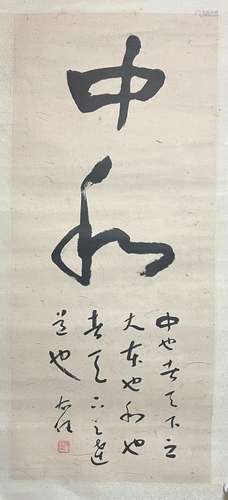 中和
中也者天下之
大本也和也
者天下之達
道也
右任